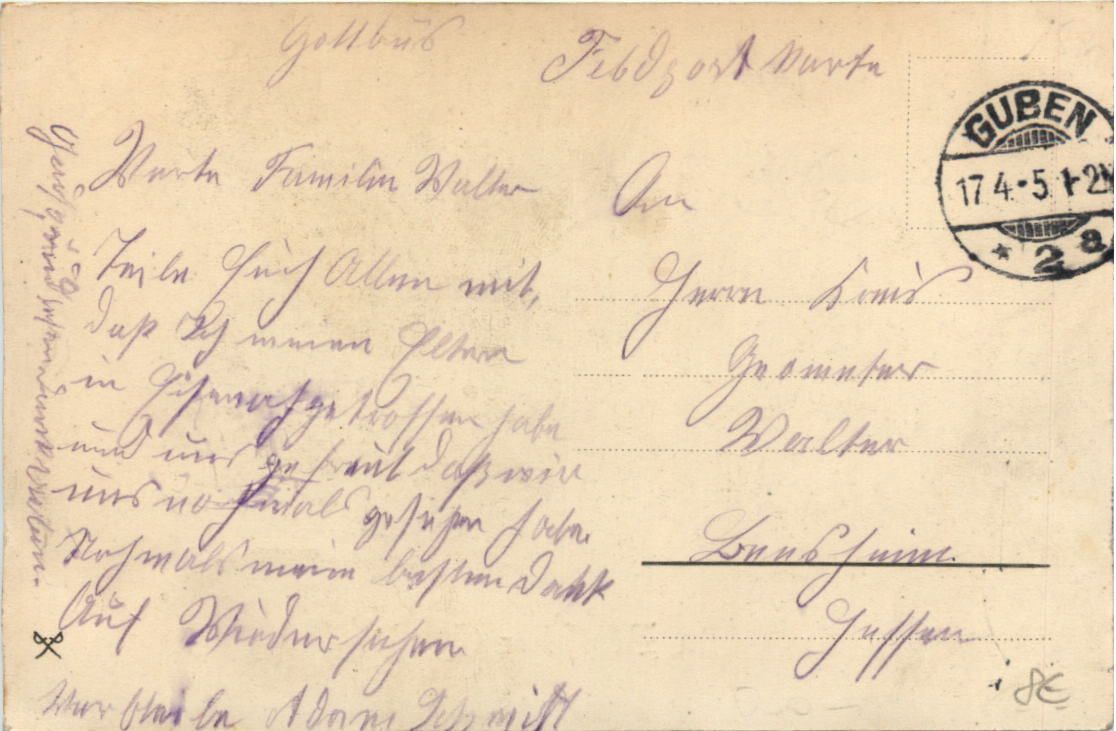 Cottbus
Feldpost Karte
GUBEN
17 4.-5 1-2N
* 2 a
Werte Familie Walter
Teile Euch Allen mit,
daß Ich meinen Eltern
in Eisenach getroffen habe
und uns gefreut daß wir
uns nochmals gesehen habe.
Nochmals mein besten Dank
Auf Wiedersehen
Verbleibe Adam Schmitt
An
Herrn Kreis
Geometer
Walter
Bensheim.
Hessen
8€